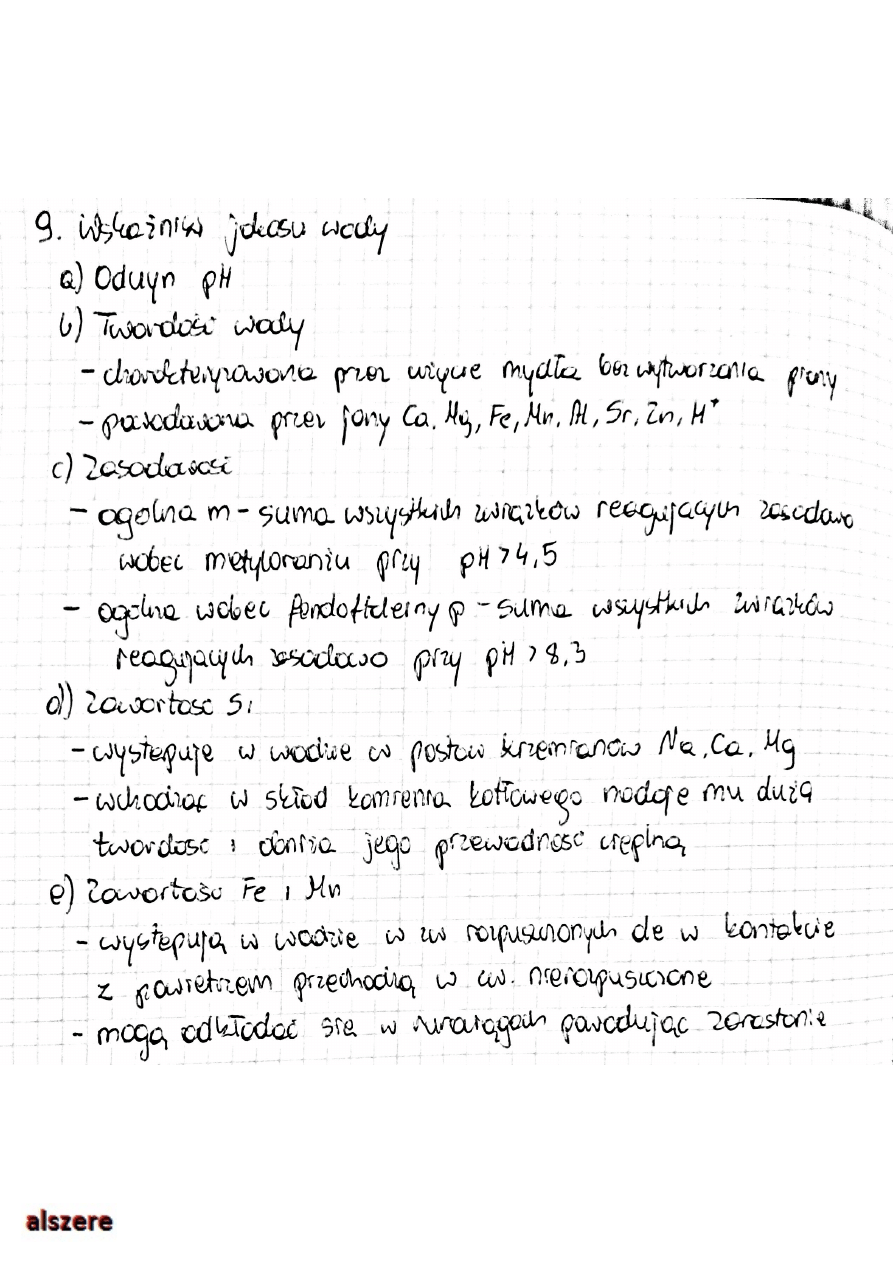 9. Wskaźniki jakości wody
a) Odczyn pH
b) Twardość wody
- charakteryzowana przez użycie mydła bez wytworzenia piany
- powodowana przez jony Ca, Mg, Fe, Mn, Al, Sr, Zn, H⁺
c) Zasadowość
- ogólna m - suma wszystkich związków reagujących zasadowo
wobec metyloranżu przy pH > 4,5
- ogólna wobec fenoloftaleiny p - suma wszystkich związków
reagujących zasadowo przy pH > 8,3
d) Zawartość Si
- występuje w wodzie w postaci krzemianów Na, Ca, Mg
- wchodząc w skład kamienia kotłowego nadaje mu dużą
twardość i obniża jego przewodność cieplną
e) Zawartości Fe i Mn
- występują w wodzie w zw rozpuszczonych ale w kontakcie
z powietrzem przechodzą w zw. nierozpuszczone
- mogą odkładać się w rurociągach powodując zarastanie
alszere